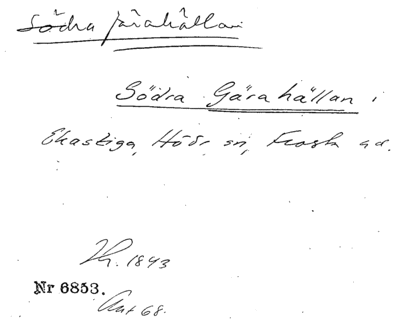 Södra järahällan
Södra Gärahällan i
Ekastiga, Höör sn, Frosta hd.
1843
Nr 6853.
68.